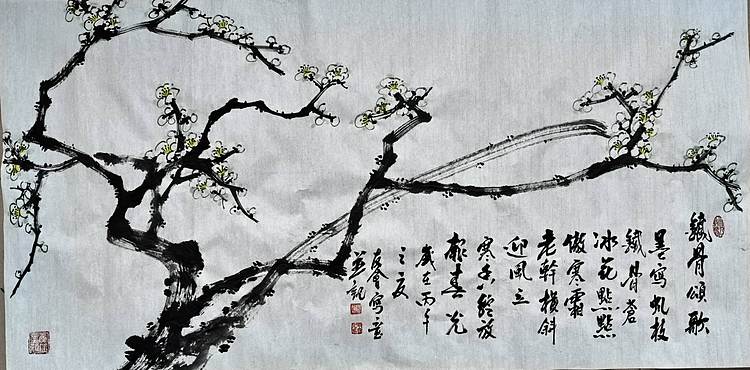 鐵骨頌歌
墨寫虬枝
鐵骨蒼
冰花點點
傲寒霜
老幹橫斜
迎風立
寒香綻放
報春光
歲在丙午
之夏
寫意
並記